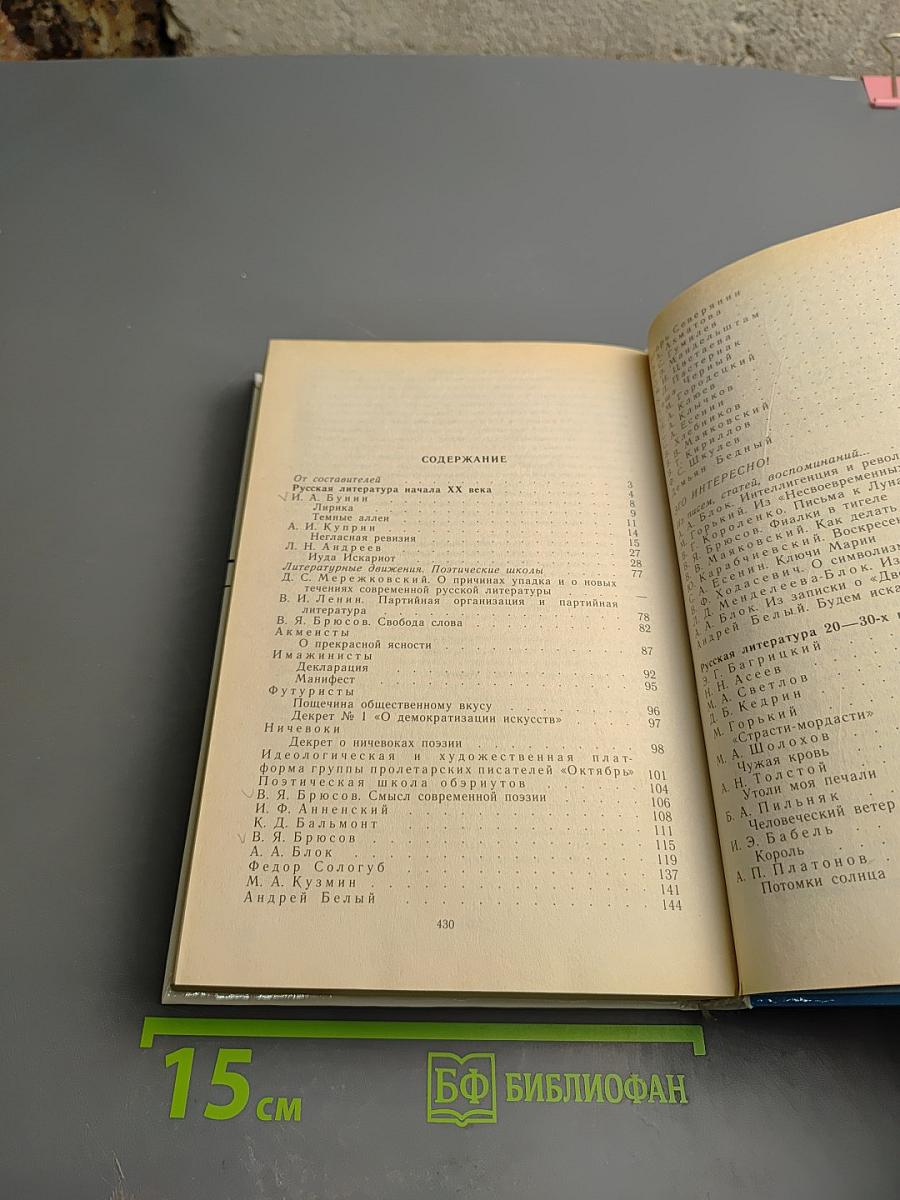 СОДЕРЖАНИЕ
От составителей 3
Русская литература начала XX века 4
И. А. Бунин 8
Лирика 9
Темные аллеи 11
А. И. Куприн 14
Негласная ревизия 15
Л. Н. Андреев 27
Иуда Искариот 28
Литературные движения. Поэтические школы 77
Д. С. Мережковский. О причинах упадка и о новых
течениях современной русской литературы —
В. И. Ленин. Партийная организация и партийная
литература 78
В. Я. Брюсов. Свобода слова 82
Акмеисты
О прекрасной ясности 87
Имажинисты
Декларация 92
Манифест 95
Футуристы
Пощечина общественному вкусу 96
Декрет № 1 «О демократизации искусств» 97
Ничевоки
Декрет о ничевоках поэзии 98
Идеологическая и художественная плат-
форма группы пролетарских писателей «Октябрь» 101
Поэтическая школа обэриутов 104
В. Я. Брюсов. Смысл современной поэзии 106
И. Ф. Анненский 108
К. Д. Бальмонт 111
В. Я. Брюсов 115
А. А. Блок 119
Федор Сологуб 137
М. А. Кузмин 141
Андрей Белый 144
430
Северянин
Ахматова
Гумилев
Мандельштам
Цветаева
Пастернак
Черный
Городецкий
Клюев
Клычков
Есенин
Хлебников
Маяковский
Кириллов
Шкулев
Бедный
ИНТЕРЕСНО!
писем, статей, воспоминаний...
А. Блок. Интеллигенция и
Горький. Из «Несвоевременных
Короленко. Письма к
Я. Брюсов. Фиалки в тигеле
В. Маяковский. Как делать
Карабчиевский.
А. Есенин. Ключи Марии
Ф. Ходасевич. О
Д. Менделеева-Блок. Из
А. Блок. Из записки о
Андрей Белый. Будем
Русская литература 20—30-х
Э. Г. Багрицкий
Н. Н. Асеев
М. А. Светлов
Д. Б. Кедрин
М. Горький
«Страсти-мордасти»
М. А. Шолохов
Чужая кровь
А. Н. Толстой
Утоли моя печали
Б. А. Пильняк
Человеческий ветер
И. Э. Бабель
Король
А. П. Платонов
Потомки солнца
15 см
БФ БИБЛИОФАН